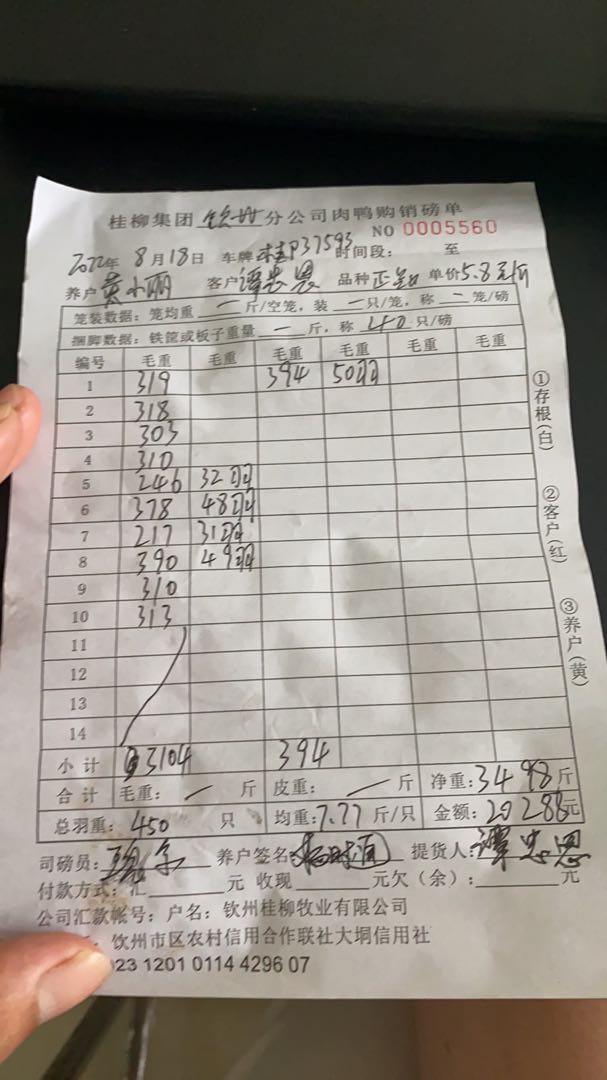 桂柳集团 钦州 分公司肉鸭购销磅单
NO 0005560
2022年 8月18日 车牌 桂P37593 时间段： 至
养户 黄小丽 客户 谭忠恩 品种 单价5.8元/斤
笼装数据：笼均重 一 斤/空笼，装 一 只/笼，称 一 笼/磅
捆脚数据：铁筐或板子重量 一 斤，称 40 只/磅
编号 毛重 毛重 毛重 毛重 毛重 毛重
1 319 394 50羽
2 318
3 303
4 310
5 246 32羽
6 378 48羽
7 217 31羽
8 390 49羽
9 310
10 313
11
12
13
14
小计 3104 394
合计 毛重： 一 斤 皮重： 一 斤 净重：3498斤
总羽重：450 只 均重：7.77斤/只 金额：20288元
司磅员： 养户签名： 提货人：谭忠恩
付款方式：汇 元 收现 元欠（余）： 元
公司汇款帐号：户名：钦州桂柳牧业有限公司
：钦州市区农村信用合作联社大垌信用社
023 1201 0114 4296 07
①存根（白）
②客户（红）
③养户（黄）